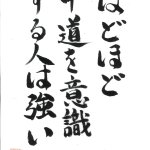 ほどほど
中道を意識
する人は強い